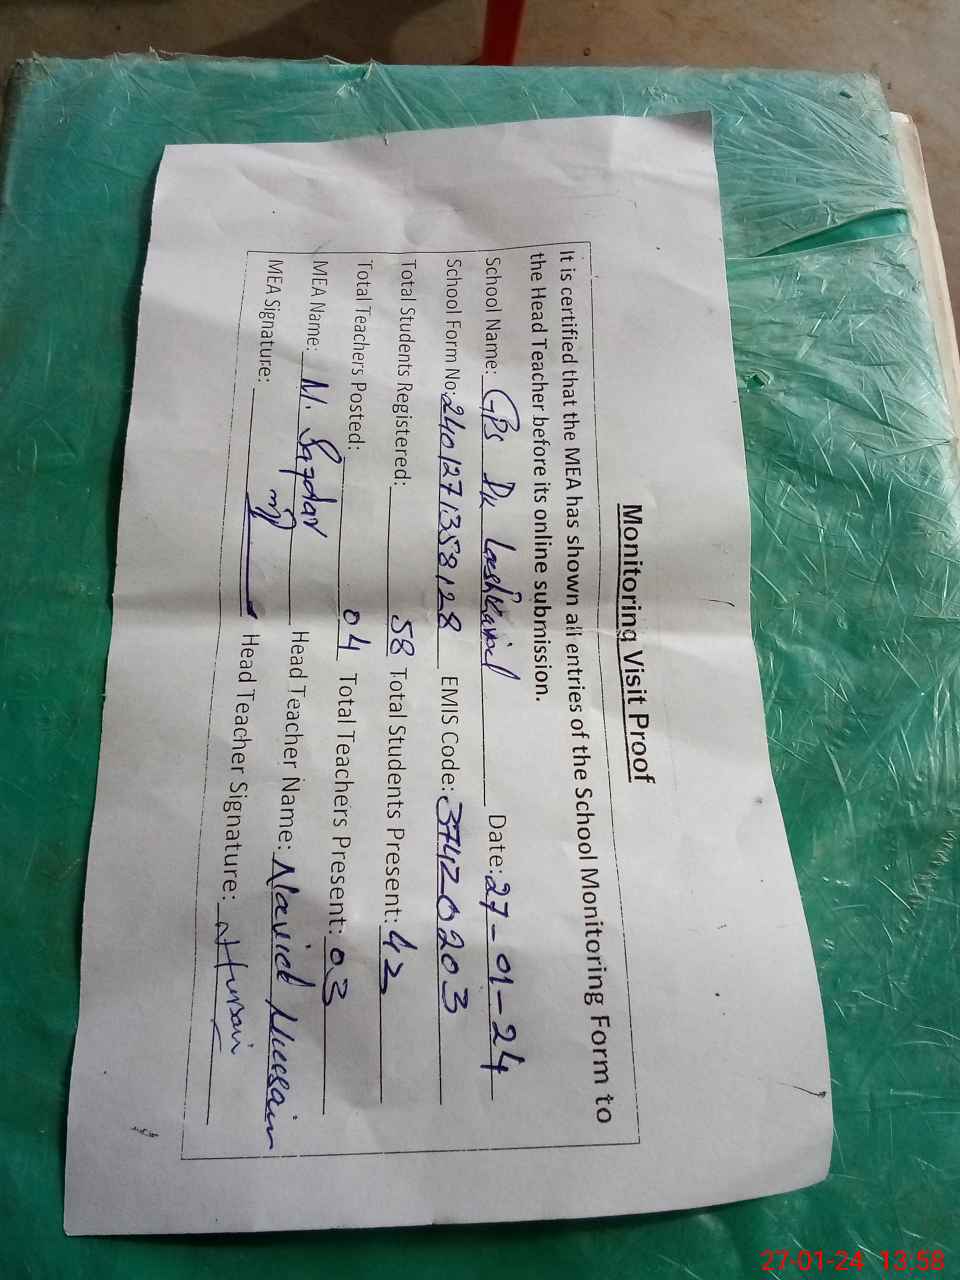 Monitoring Visit Proof
It is certified that the MEA has shown all entries of the School Monitoring Form to
the Head Teacher before its online submission.
School Name: GPS Dk Lashkarial Date: 27-01-24
School Form No: 2401271358128 EMIS Code: 37420203
Total Students Registered: 58 Total Students Present: 42
Total Teachers Posted: 04 Total Teachers Present: 03
MEA Name: M. Safdar Head Teacher Name: Navid Hussain
MEA Signature: Head Teacher Signature: Hussain
27-01-24 13:58